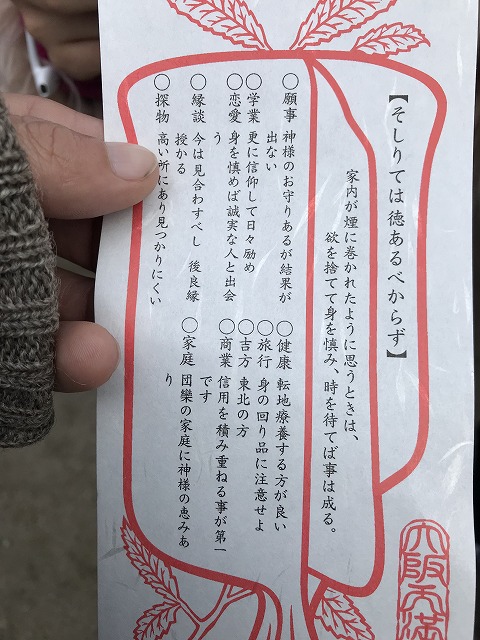 【そしりては徳あるべからず】
家内が煙に巻かれたように思うときは、
欲を捨てて身を慎み、時を待てば事は成る。
○願事 神様のお守りあるが結果が
出ない
○学業 更に信仰して日々励め
○恋愛 身を慎めば誠実な人と出会
う
○縁談 今は見合わすべし 後良縁
授かる
○探物 高い所にあり見つかりにくい
○健康 転地療養する方が良い
○旅行 身の回り品に注意せよ
○吉方 東北の方
○商業 信用を積み重ねる事が第一
です
○家庭 団欒の家庭に神様の恵みあ
り
大阪天満